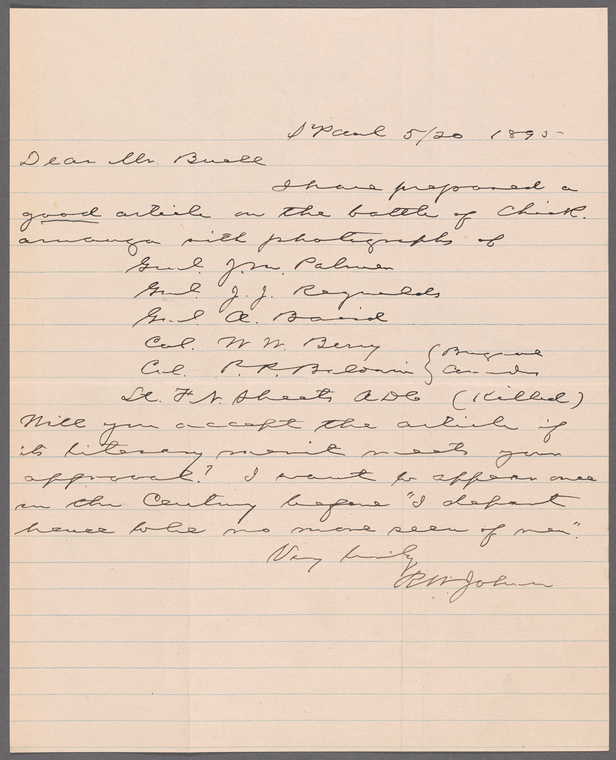 St Paul 5/20 1895
Dear Mr. Buell
I have prepared a
good article on the battle of Chick.
amauga with photographs of
Genl. J. M. Palmer
Genl. J. J. Reynolds
Genl. A. Baird
Col. W. W. Berry
Col. P. P. Baldwin { Brigade Comds
Lt. F. N. Sheets ADC (Killed)
Will you accept the article if
its literary merit meets your
approval? I want to appear once
in the Century before "I depart
hence to be no more seen of men".
Very truly
R W Johnson